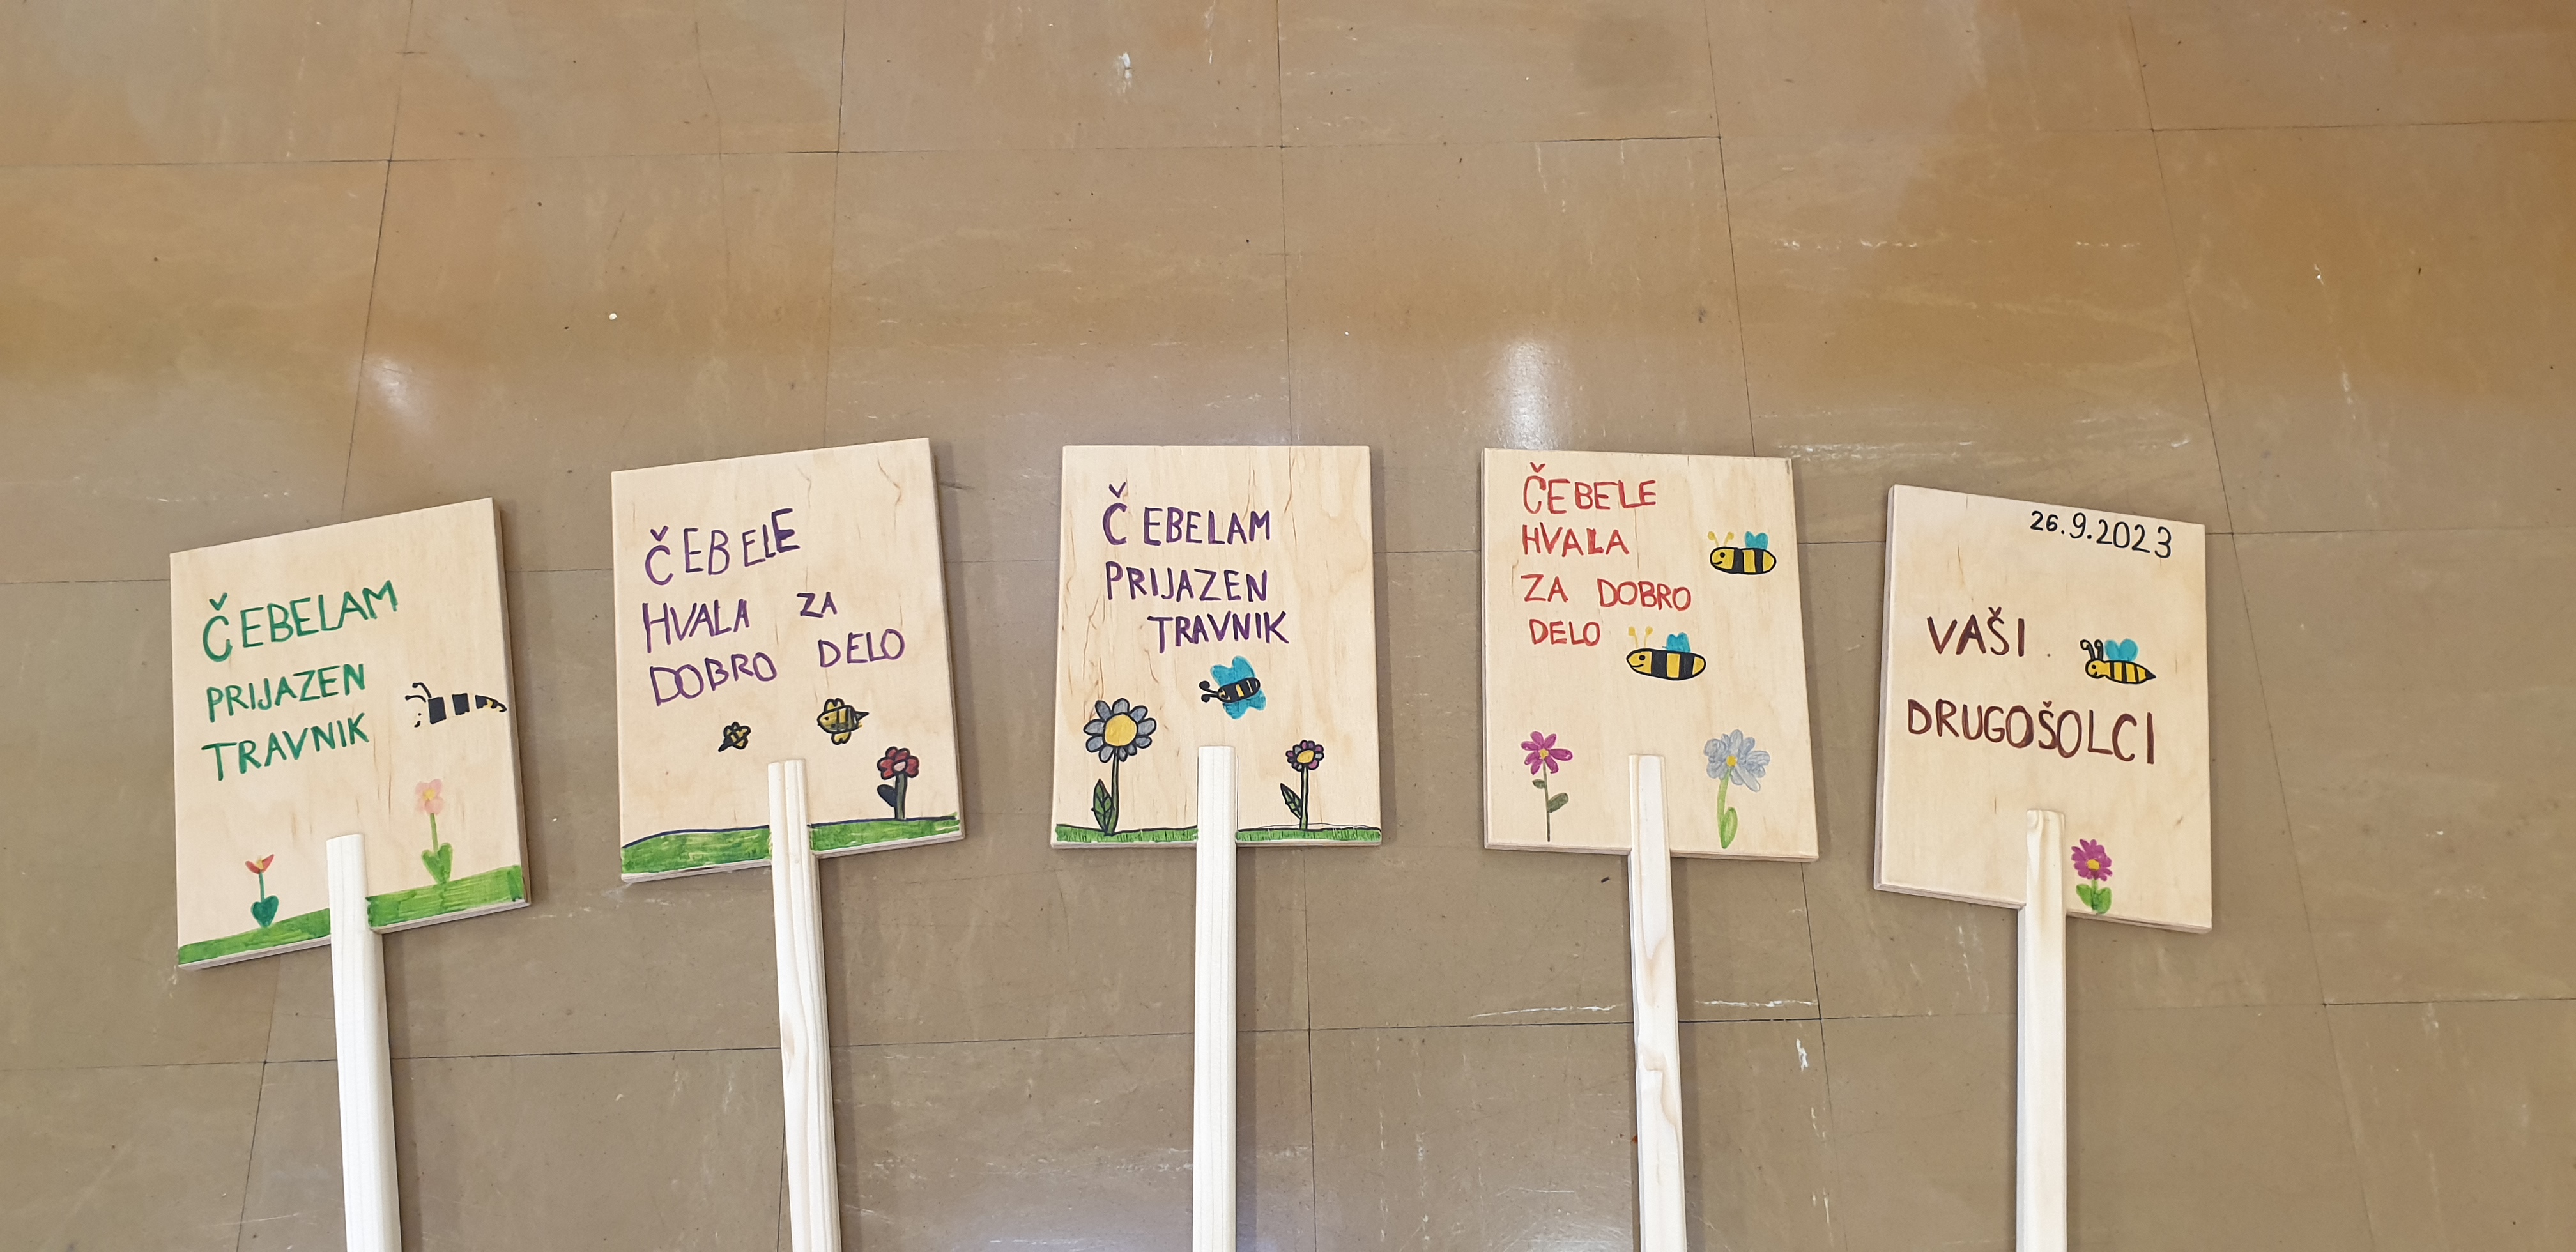 ČEBELAM
PRIJAZEN
TRAVNIK
ČEBELE
HVALA ZA
DOBRO DELO
ČEBELAM
PRIJAZEN
TRAVNIK
ČEBELE
HVALA
ZA DOBRO
DELO
26.9.2023
VAŠI
DRUGOŠOLCI